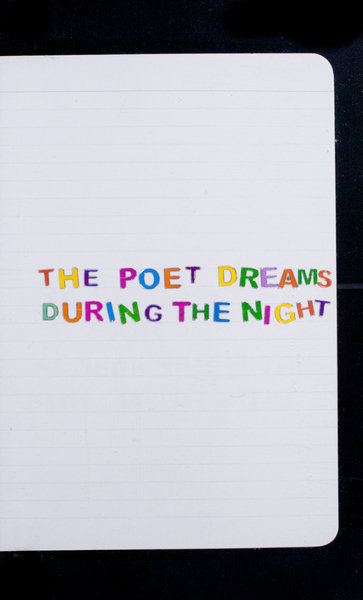 THE POET DREAMS
DURING THE NIGHT